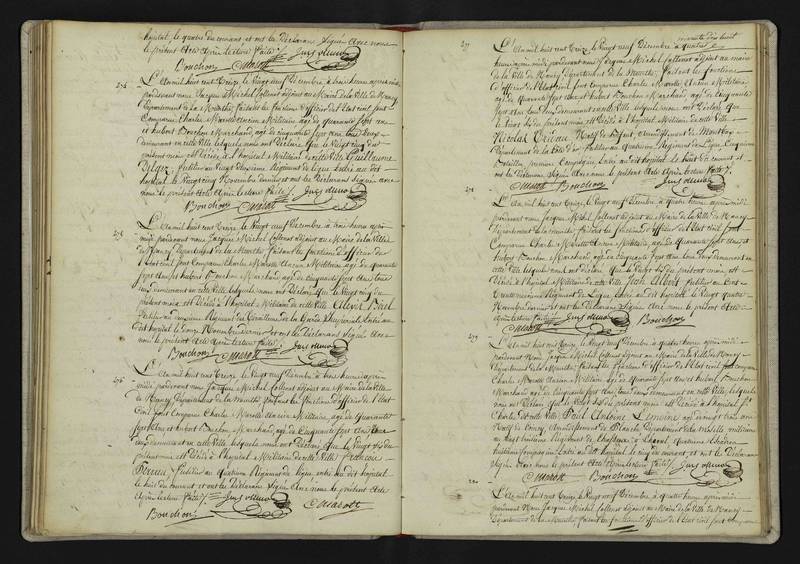 hôpital, le quatre du courant et ont les Déclarans Signé avec nous
le présent acte après lecture faite
Bouchon Marott
274
L'An mil huit cent Treize, le Vingt neuf Décembre à trois heures après midi
pardevant nous Jacques Michel adjoint au Maire de la Ville de Nancy
Département de la Meurthe, faisant les fonctions d'officier de l'Etat civil sont
Comparus Charles Marotte ancien Militaire agé de quarante sept ans
et hubert Bouchon Marchand, agé de cinquante sept ans tous deux
demeurant en cette Ville lesquels nous ont Déclaré que le Vingt cinq du
présent mois est Décédé à l'hôpital Militaire de cette Ville Guillaume
fusilier au Régiment de ligne entré au dit
hôpital le Vingt cinq Novembre dernier et ont les Déclarans Signé avec
nous le présent Acte Après Lecture faite
Bouchon Marott
275
L'An mil huit cent Treize, le Vingt neuf Décembre à trois heures après
midi pardevant nous Jacques Michel adjoint au Maire de la Ville
de Nancy Département de la Meurthe faisant les fonctions d'officier de
l'Etat civil sont Comparus Charles Marotte Ancien Militaire agé de quarante
sept Ans et hubert Bouchon Marchand, agé de cinquante sept Ans tous
deux demeurant en cette Ville lesquels nous ont Déclaré que le Vingt cinq du
présent mois est Décédé à l'hôpital Militaire de cette Ville Alexis
fusilier au Régiment de la Garde Impériale Entré au
dit hôpital le Novembre dernier et ont les Déclarans Signé Avec
nous le présent Acte Après lecture faite
Bouchon Marott
276
L'An mil huit cent Treize, le Vingt neuf Décembre à trois heures après
midi pardevant nous Jacques Michel adjoint au Maire de la Ville
de Nancy Département de la Meurthe faisant les fonctions d'officier de l'Etat
Civil sont Comparus Charles Marotte Ancien Militaire, agé de Quarante
sept Ans et hubert Bouchon Marchand, agé de Cinquante sept Ans tous
deux demeurant en cette Ville lesquels nous ont Déclaré que le Vingt six du
présent mois est Décédé à l'hôpital Militaire de cette Ville François
fusilier au quatrième Régiment de ligne entré au dit hôpital
le huit du courant et ont les Déclarans Signé Avec nous le présent Acte
Après Lecture faite
Bouchon Marott
277
L'An mil huit cent Treize le Vingt neuf Décembre à quatre
heures après midi pardevant nous Jacques Michel adjoint au maire
de la Ville de Nancy Département de la Meurthe, faisant les fonctions
d'officier de l'Etat civil sont Comparus Charles Marotte Ancien Militaire
agé de quarante sept ans et hubert Bouchon Marchand agé de cinquante
sept ans tous deux demeurant en cette Ville lesquels nous ont Déclaré que
le Vingt six du présent mois est Décédé à l'hôpital Militaire de cette Ville
Nicolas
Département de la Côte d'or, fusilier au Quatrième Régiment de Ligne Cinquième
Bataillon première Compagnie Entré au dit hôpital le huit du courant et
ont les Déclarans Signé Avec nous le présent acte Après lecture faite
Marott Bouchon
278
L'An mil huit cent Treize, le Vingt neuf Décembre à quatre heures après midi
pardevant nous Jacques Michel adjoint au Maire de la Ville de Nancy
Département de la Meurthe faisant les fonctions d'officier de l'Etat civil sont
Comparus Charles Marotte Ancien Militaire, agé de quarante sept Ans et
hubert Bouchon Marchand agé de cinquante sept Ans tous Deux demeurant en
cette Ville lesquels nous ont Déclaré Que le Vingt six du présent mois est
Décédé à l'hôpital Militaire de cette Ville Jean fusilier au Cent
Régiment de Ligne Entré au dit hôpital le Vingt quatre
Novembre dernier et ont les Déclarans Signé Avec nous le présent Acte
Après lecture faite
Marott Bouchon
279
L'An mil huit cent Treize, le Vingt neuf Décembre à quatre heures après midi
pardevant Nous Jacques Michel adjoint au Maire de la Ville de Nancy
Département de la Meurthe faisant les fonctions d'officier de l'Etat civil sont comparus
Charles Marotte Ancien Militaire agé de Quarante sept Ans et hubert Bouchon
Marchand agé de cinquante sept Ans, tous deux demeurant en cette Ville, lesquels
nous ont Déclaré que le Vingt six du présent mois est Décédé à l'hôpital St
Charles de cette Ville, Paul Antoine Lemoine agé de vingt trois ans
Natif de
au Vingt huitième Régiment de Chasseurs à Cheval quatrième Escadron
huitième Compagnie Entré au dit hôpital le cinq du courant et ont les Déclarans
Signé Avec nous le présent acte Après lecture faite
Marott Bouchon
280
L'An mil huit cent Treize, le Vingt neuf Décembre à quatre heures après midi
pardevant Nous Jacques Michel adjoint au Maire de la Ville de Nancy
Département de la Meurthe faisant les fonctions d'officier de l'Etat civil sont Comparus